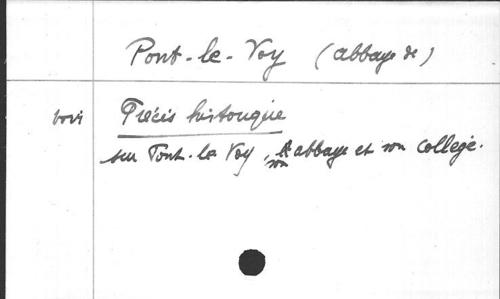 Pont-le-Voy (abbaye de)
voir Précis historique
sur Pont-le Voy, son abbaye et son collège.